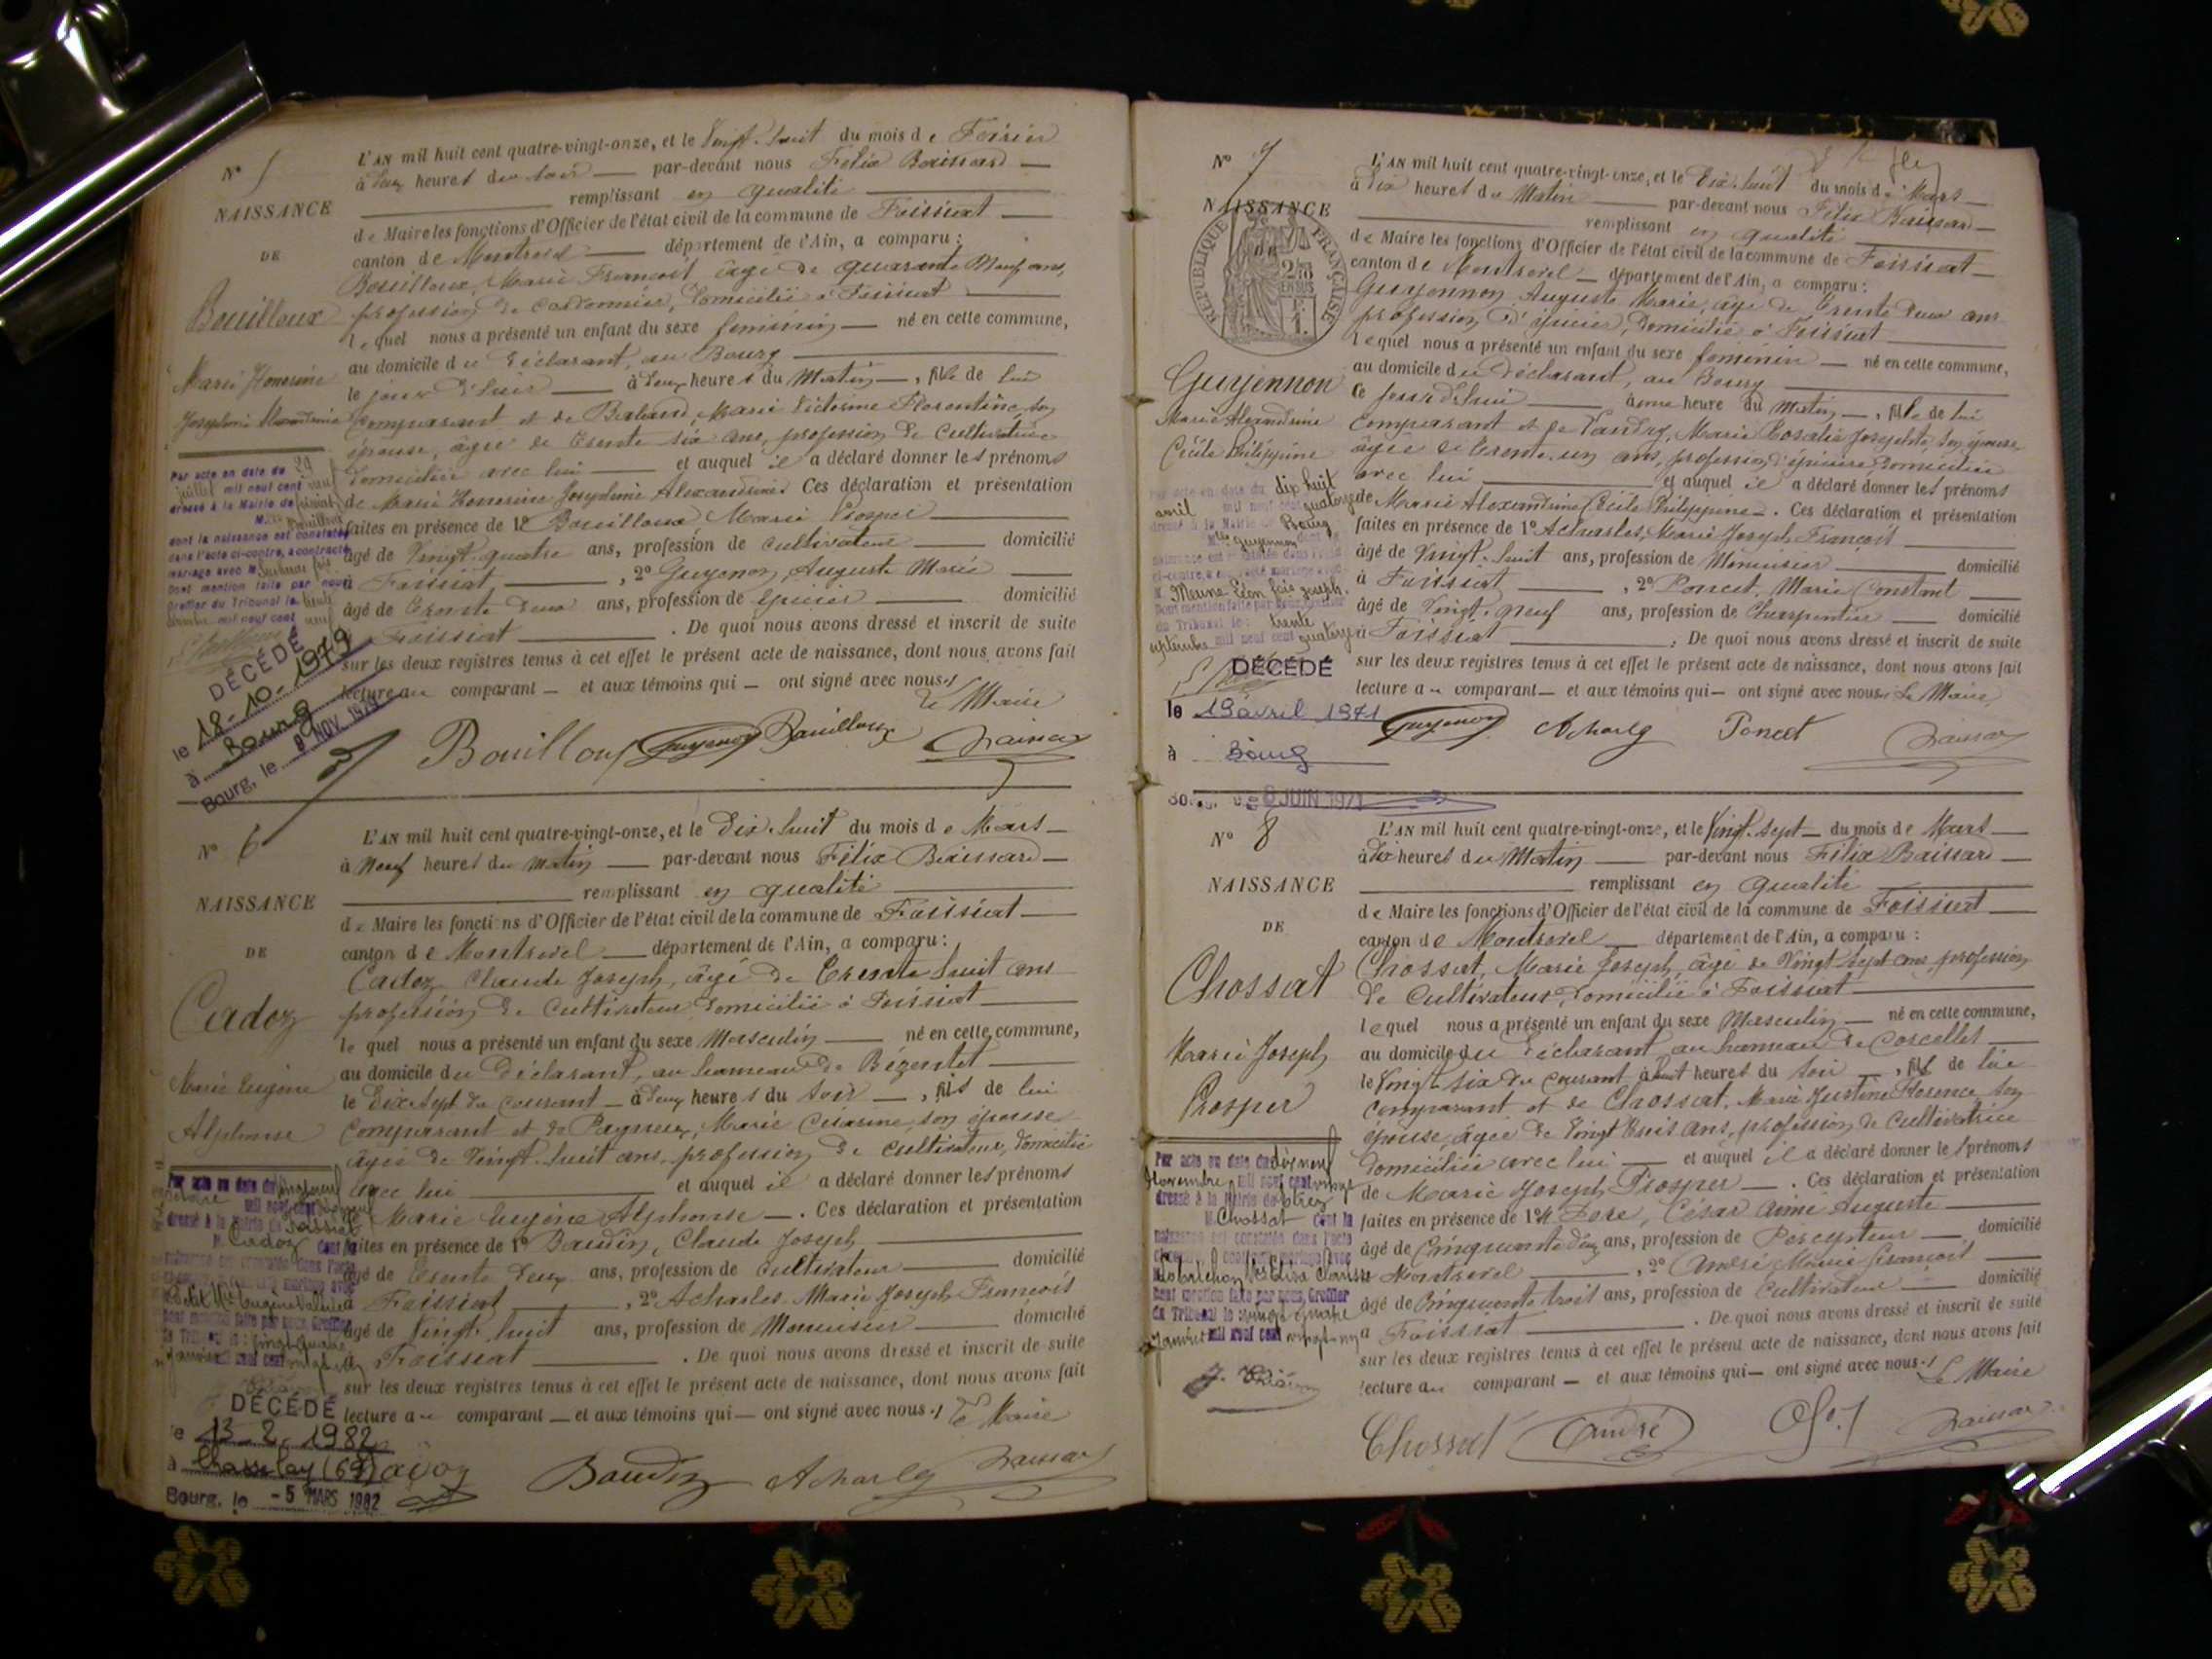 N° 5
NAISSANCE
DE
Bouilloux
Marie Honorine
Joséphine Alexandrine
L'AN mil huit cent quatre-vingt-onze, et le Vingt-huit du mois de Février
à deux heures du soir par-devant nous Félix Baissard
remplissant en qualité
de Maire les fonctions d'Officier de l'état civil de la commune de Foissiat
canton de Montrevel département de l'Ain, a comparu :
Bouilloux, Marie François, âgé de quarante Neuf ans,
profession de Cordonnier, domicilié à Foissiat
lequel nous a présenté un enfant du sexe féminin né en cette commune,
au domicile du déclarant, au Bourg
le jour d'hier à deux heures du Matin, fille de lui
comparant et de Baland, Marie Victorine Florentine son
épouse, âgée de trente six ans, profession de Cultivatrice
domiciliée avec lui et auquel il a déclaré donner les prénoms
de Marie Honorine Joséphine Alexandrine. Ces déclaration et présentation
faites en présence de 1° Bouilloux Marie Prosper
âgé de Vingt-quatre ans, profession de cultivateur domicilié
à Foissiat, 2° Guyenon, Auguste Marie
âgé de trente deux ans, profession de épicier domicilié
à Foissiat. De quoi nous avons dressé et inscrit de suite
sur les deux registres tenus à cet effet le présent acte de naissance, dont nous avons fait
lecture au comparant et aux témoins qui ont signé avec nous. Le Maire
Par acte en date du 29
juillet mil neuf cent neuf
dressé à la Mairie de Foissiat
M. Bouilloux
dont la naissance est constatée
dans l'acte ci-contre, a contracté
mariage avec M.
Dont mention faite par nous
Greffier du Tribunal le trente
mil neuf cent neuf
DÉCÉDÉ
le 18-10-1979
à Bourg
Bourg, le 8 NOV. 1979
Bouilloux Guyenon Bouilloux Baissard
N° 6
NAISSANCE
DE
Cadoz
Marie Eugène
Alphonse
L'AN mil huit cent quatre-vingt-onze, et le Dix-huit du mois de Mars
à Neuf heures du matin par-devant nous Félix Baissard
remplissant en qualité
de Maire les fonctions d'Officier de l'état civil de la commune de Foissiat
canton de Montrevel département de l'Ain, a comparu :
Cadoz Claude Joseph, âgé de trente huit ans
profession de Cultivateur domicilié à Foissiat
lequel nous a présenté un enfant du sexe Masculin né en cette commune,
au domicile du déclarant, au hameau de Bézentet
le Dix-sept du courant à deux heures du soir, fils de lui
comparant et de Marie Césarine, son épouse
âgée de Vingt-huit ans, profession de cultivateur, domicilié
avec lui et auquel il a déclaré donner les prénoms
de Marie Eugène Alphonse. Ces déclaration et présentation
faites en présence de 1° Baudin, Claude Joseph
âgé de trente deux ans, profession de Cultivateur domicilié
à Foissiat, 2° Acharles Marie Joseph François
âgé de Vingt-huit ans, profession de Menuisier domicilié
à Foissiat. De quoi nous avons dressé et inscrit de suite
sur les deux registres tenus à cet effet le présent acte de naissance, dont nous avons fait
lecture au comparant et aux témoins qui ont signé avec nous. Le Maire
Par acte en date du
mil neuf cent
dressé à la Mairie de Foissiat
M. Cadoz dont la
naissance est constatée dans l'acte
ci-contre, a contracté mariage avec
Dont mention faite par nous, Greffier
du Tribunal le vingt quatre
janvier mil neuf cent vingt
DÉCÉDÉ
le 13-2-1982
à Chasselay (69)
Bourg, le -5 MARS 1982
Cadoz Baudin Acharles Baissard
N° 7
NAISSANCE
DE
RÉPUBLIQUE FRANÇAISE
2/10 EN SUS
Guyennon
Marie Alexandrine
Cécile Philippine
L'AN mil huit cent quatre-vingt-onze, et le Dix-huit du mois de Mars
à dix heures du Matin par-devant nous Félix Baissard
remplissant en qualité
de Maire les fonctions d'Officier de l'état civil de la commune de Foissiat
canton de Montrevel département de l'Ain, a comparu :
Guyennon Auguste Marie, âgé de trente deux ans
profession d'épicier, domicilié à Foissiat
lequel nous a présenté un enfant du sexe féminin né en cette commune,
au domicile du déclarant, au Bourg
ce jourd'hui à une heure du matin, fille de lui
comparant et de Landry, Marie Rosalie Josephte, son épouse,
âgée de trente un ans, profession d'épicière domiciliée
avec lui et auquel il a déclaré donner les prénoms
de Marie Alexandrine Cécile Philippine. Ces déclaration et présentation
faites en présence de 1° Acharles, Marie Joseph François
âgé de Vingt-huit ans, profession de Menuisier domicilié
à Foissiat, 2° Poncet, Marie Constant
âgé de Vingt-neuf ans, profession de Charpentier domicilié
à Foissiat. De quoi nous avons dressé et inscrit de suite
sur les deux registres tenus à cet effet le présent acte de naissance, dont nous avons fait
lecture au comparant et aux témoins qui ont signé avec nous. Le Maire
Par acte en date du dix huit
avril mil neuf cent quatorze
dressé à la Mairie de Bourg
Mlle Guyennon dont la
naissance est constatée dans l'acte
ci-contre, a contracté mariage avec
M. Meune Léon fois Joseph.
Dont mention faite par nous, Greffier
du Tribunal le trente
septembre mil neuf cent quatorze
DÉCÉDÉ
le 19 avril 1971
à Bourg
Bourg, le 8 JUIN 1971
Guyenon Acharles Poncet Baissard
N° 8
NAISSANCE
DE
Chossat
Marie Joseph
Prosper
L'AN mil huit cent quatre-vingt-onze, et le Vingt-sept du mois de Mars
à dix heures du Matin par-devant nous Félix Baissard
remplissant en qualité
de Maire les fonctions d'Officier de l'état civil de la commune de Foissiat
canton de Montrevel département de l'Ain, a comparu :
Chossat, Marie Joseph, âgé de Vingt sept ans, profession
de Cultivateur, domicilié à Foissiat
lequel nous a présenté un enfant du sexe Masculin né en cette commune,
au domicile du déclarant au hameau de Corcelles
le Vingt-six du courant à huit heures du soir, fils de lui
comparant et de Chossat, Marie Justine Florence son
épouse, âgée de Vingt trois ans, profession de Cultivatrice
domiciliée avec lui et auquel il a déclaré donner les prénoms
de Marie Joseph Prosper. Ces déclaration et présentation
faites en présence de 1° César Aimé Auguste
âgé de Cinquante deux ans, profession de Percepteur domicilié
à Montrevel, 2° André Marie François
âgé de Cinquante trois ans, profession de Cultivateur domicilié
à Foissiat. De quoi nous avons dressé et inscrit de suite
sur les deux registres tenus à cet effet le présent acte de naissance, dont nous avons fait
lecture au comparant et aux témoins qui ont signé avec nous. Le Maire
Par acte en date du dix neuf
Novembre mil neuf cent vingt
dressé à la Mairie de
M. Chossat dont la
naissance est constatée dans l'acte
ci-contre, a contracté mariage avec
Elisa Clarisse
Dont mention faite par nous, Greffier
du Tribunal le vingt quatre
Janvier mil neuf cent vingt un
Chossat André Baissard